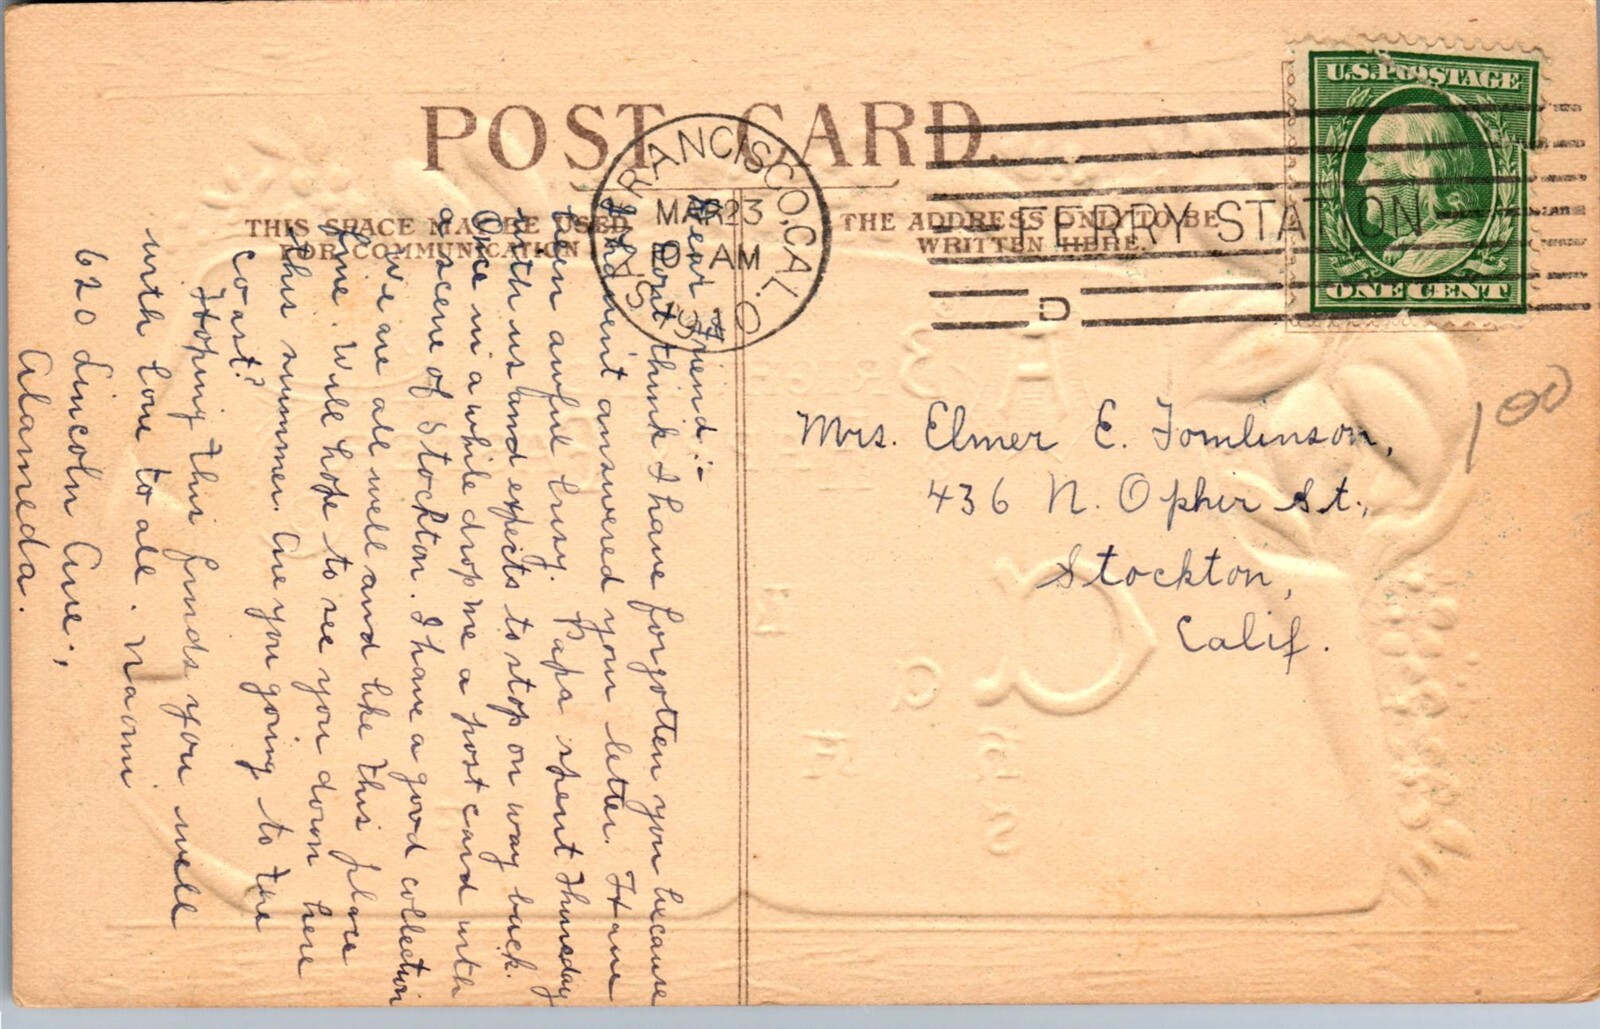 POST CARD.
THIS SPACE MAY BE USED
FOR COMMUNICATION
THE ADDRESS ONLY TO BE
WRITTEN HERE.
SAN FRANCISCO, CAL.
MAR 23
AM
1910
FERRY STATION
D
U.S. POSTAGE
ONE CENT
100
Mrs. Elmer E. Tomlinson,
436 N. Ophir St.,
Stockton,
Calif.
Dear Friend:-
Dont think I have forgotten you because
I hadn't answered your letter. Have
been awful busy. Papa spent Thursday
with us and expects to stop on way back.
Once in a while drop me a post card with
a scene of Stockton. I have a good collection
We are all well and like this place
fine. Will hope to see you down here
this summer. Are you going to the
coast?
Hoping this finds you well
with love to all. Naomi
620 Lincoln Ave.,
Alameda.